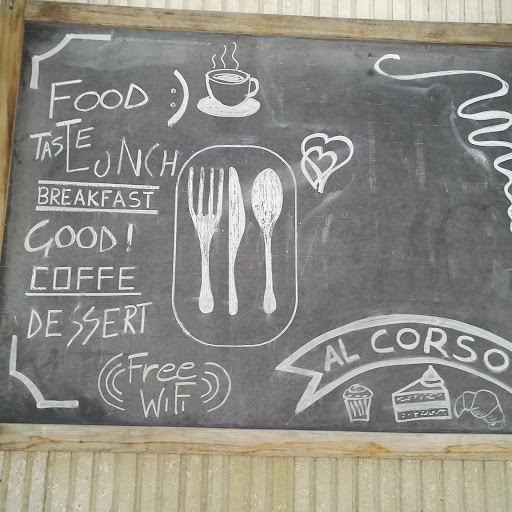 FOOD :)
TASTE
LUNCH
BREAKFAST
GOOD!
COFFE
DESSERT
Free
WiFi
AL CORSO